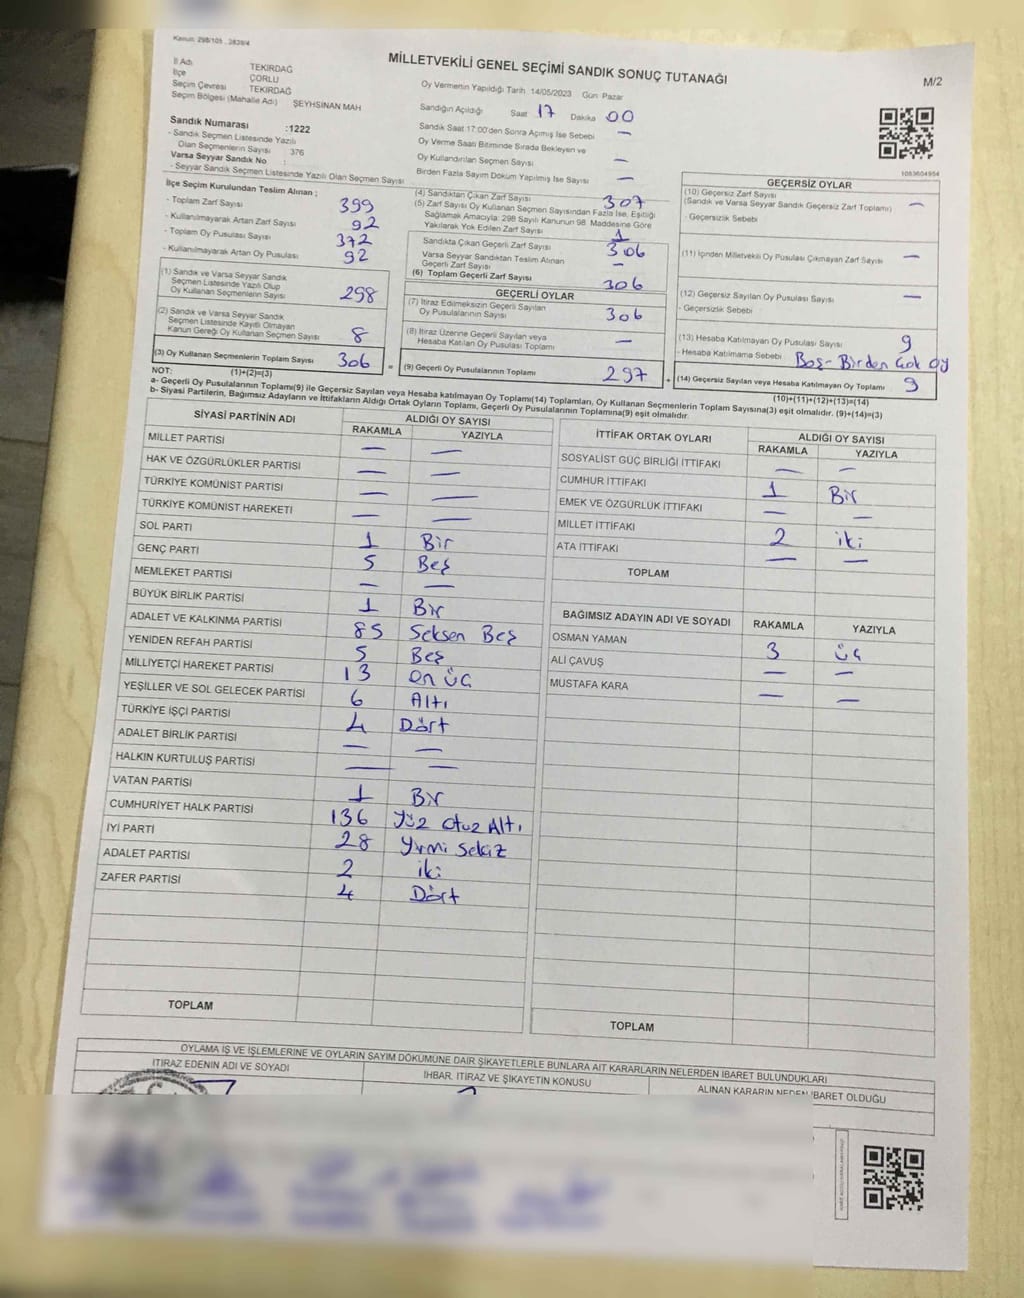 Kanun: 298/105 , 2839/4
MİLLETVEKİLİ GENEL SEÇİMİ SANDIK SONUÇ TUTANAĞI
M/2
İl Adı TEKİRDAĞ
İlçe ÇORLU
Seçim Çevresi TEKİRDAĞ
Seçim Bölgesi (Mahalle Adı) ŞEYHSİNAN MAH
Oy Vermenin Yapıldığı Tarih 14/05/2023 Gün Pazar
Sandığın Açıldığı Saat 17 Dakika 00
Sandık Saat 17:00'den Sonra Açılmış İse Sebebi —
Oy Verme Saati Bitiminde Sırada Bekleyen ve
Oy Kullandırılan Seçmen Sayısı —
Birden Fazla Sayım Döküm Yapılmış İse Sayısı —
1083604954
Sandık Numarası :1222
- Sandık Seçmen Listesinde Yazılı
Olan Seçmenlerin Sayısı : 376
Varsa Seyyar Sandık No :
- Seyyar Sandık Seçmen Listesinde Yazılı Olan Seçmen Sayısı
İlçe Seçim Kurulundan Teslim Alınan ;
- Toplam Zarf Sayısı 399
- Kullanılmayarak Artan Zarf Sayısı 92
- Toplam Oy Pusulası Sayısı 372
- Kullanılmayarak Artan Oy Pusulası 92
(1) Sandık ve Varsa Seyyar Sandık
Seçmen Listesinde Yazılı Olup
Oy Kullanan Seçmenlerin Sayısı 298
(2) Sandık ve Varsa Seyyar Sandık
Seçmen Listesinde Kayıtlı Olmayan
Kanun Gereği Oy Kullanan Seçmen Sayısı 8
(3) Oy Kullanan Seçmenlerin Toplam Sayısı 306
(4) Sandıktan Çıkan Zarf Sayısı 307
(5) Zarf Sayısı Oy Kullanan Seçmen Sayısından Fazla İse, Eşitliği
Sağlamak Amacıyla: 298 Sayılı Kanunun 98. Maddesine Göre
Yakılarak Yok Edilen Zarf Sayısı 1
Sandıkta Çıkan Geçerli Zarf Sayısı 306
Varsa Seyyar Sandıktan Teslim Alınan
Geçerli Zarf Sayısı —
(6) Toplam Geçerli Zarf Sayısı 306
GEÇERLİ OYLAR
(7) İtiraz Edilmeksizin Geçerli Sayılan
Oy Pusulalarının Sayısı 306
(8) İtiraz Üzerine Geçerli Sayılan veya
Hesaba Katılan Oy Pusulası Toplamı —
= (9) Geçerli Oy Pusulalarının Toplamı 297
GEÇERSİZ OYLAR
(10) Geçersiz Zarf Sayısı
(Sandık ve Varsa Seyyar Sandık Geçersiz Zarf Toplamı) —
- Geçersizlik Sebebi
(11) İçinden Milletvekili Oy Pusulası Çıkmayan Zarf Sayısı —
(12) Geçersiz Sayılan Oy Pusulası Sayısı —
- Geçersizlik Sebebi
(13) Hesaba Katılmayan Oy Pusulası Sayısı 9
- Hesaba Katılmama Sebebi Boş-Birden Çok Oy
+ (14) Geçersiz Sayılan veya Hesaba Katılmayan Oy Toplamı 9
NOT: (1)+(2)=(3)
(10)+(11)+(12)+(13)=(14)
a- Geçerli Oy Pusulalarının Toplamı(9) ile Geçersiz Sayılan veya Hesaba katılmayan Oy Toplamı(14) Toplamları, Oy Kullanan Seçmenlerin Toplam Sayısına(3) eşit olmalıdır. (9)+(14)=(3)
b- Siyasi Partilerin, Bağımsız Adayların ve İttifakların Aldığı Ortak Oyların Toplamı, Geçerli Oy Pusulalarının Toplamına(9) eşit olmalıdır.
SİYASİ PARTİNİN ADI ALDIĞI OY SAYISI
RAKAMLA YAZIYLA
MİLLET PARTİSİ — —
HAK VE ÖZGÜRLÜKLER PARTİSİ — —
TÜRKİYE KOMÜNİST PARTİSİ — —
TÜRKİYE KOMÜNİST HAREKETİ — —
SOL PARTİ 1 Bir
GENÇ PARTİ 5 Beş
MEMLEKET PARTİSİ — —
BÜYÜK BİRLİK PARTİSİ 1 Bir
ADALET VE KALKINMA PARTİSİ 85 Seksen Beş
YENİDEN REFAH PARTİSİ 5 Beş
MİLLİYETÇİ HAREKET PARTİSİ 13 On üç
YEŞİLLER VE SOL GELECEK PARTİSİ 6 Altı
TÜRKİYE İŞÇİ PARTİSİ 4 Dört
ADALET BİRLİK PARTİSİ — —
HALKIN KURTULUŞ PARTİSİ — —
VATAN PARTİSİ 1 Bir
CUMHURİYET HALK PARTİSİ 136 Yüz Otuz Altı
İYİ PARTİ 28 Yirmi Sekiz
ADALET PARTİSİ 2 iki
ZAFER PARTİSİ 4 Dört
TOPLAM
İTTİFAK ORTAK OYLARI ALDIĞI OY SAYISI
RAKAMLA YAZIYLA
SOSYALİST GÜÇ BİRLİĞİ İTTİFAKI — —
CUMHUR İTTİFAKI 1 Bir
EMEK VE ÖZGÜRLÜK İTTİFAKI — —
MİLLET İTTİFAKI 2 iki
ATA İTTİFAKI — —
TOPLAM
BAĞIMSIZ ADAYIN ADI VE SOYADI RAKAMLA YAZIYLA
OSMAN YAMAN 3 üç
ALİ ÇAVUŞ — —
MUSTAFA KARA — —
TOPLAM
OYLAMA İŞ VE İŞLEMLERİNE VE OYLARIN SAYIM DÖKÜMÜNE DAİR ŞİKAYETLERLE BUNLARA AİT KARARLARIN NELERDEN İBARET BULUNDUKLARI
İTİRAZ EDENİN ADI VE SOYADI
İHBAR, İTİRAZ VE ŞİKAYETİN KONUSU
ALINAN KARARIN NEDEN İBARET OLDUĞU